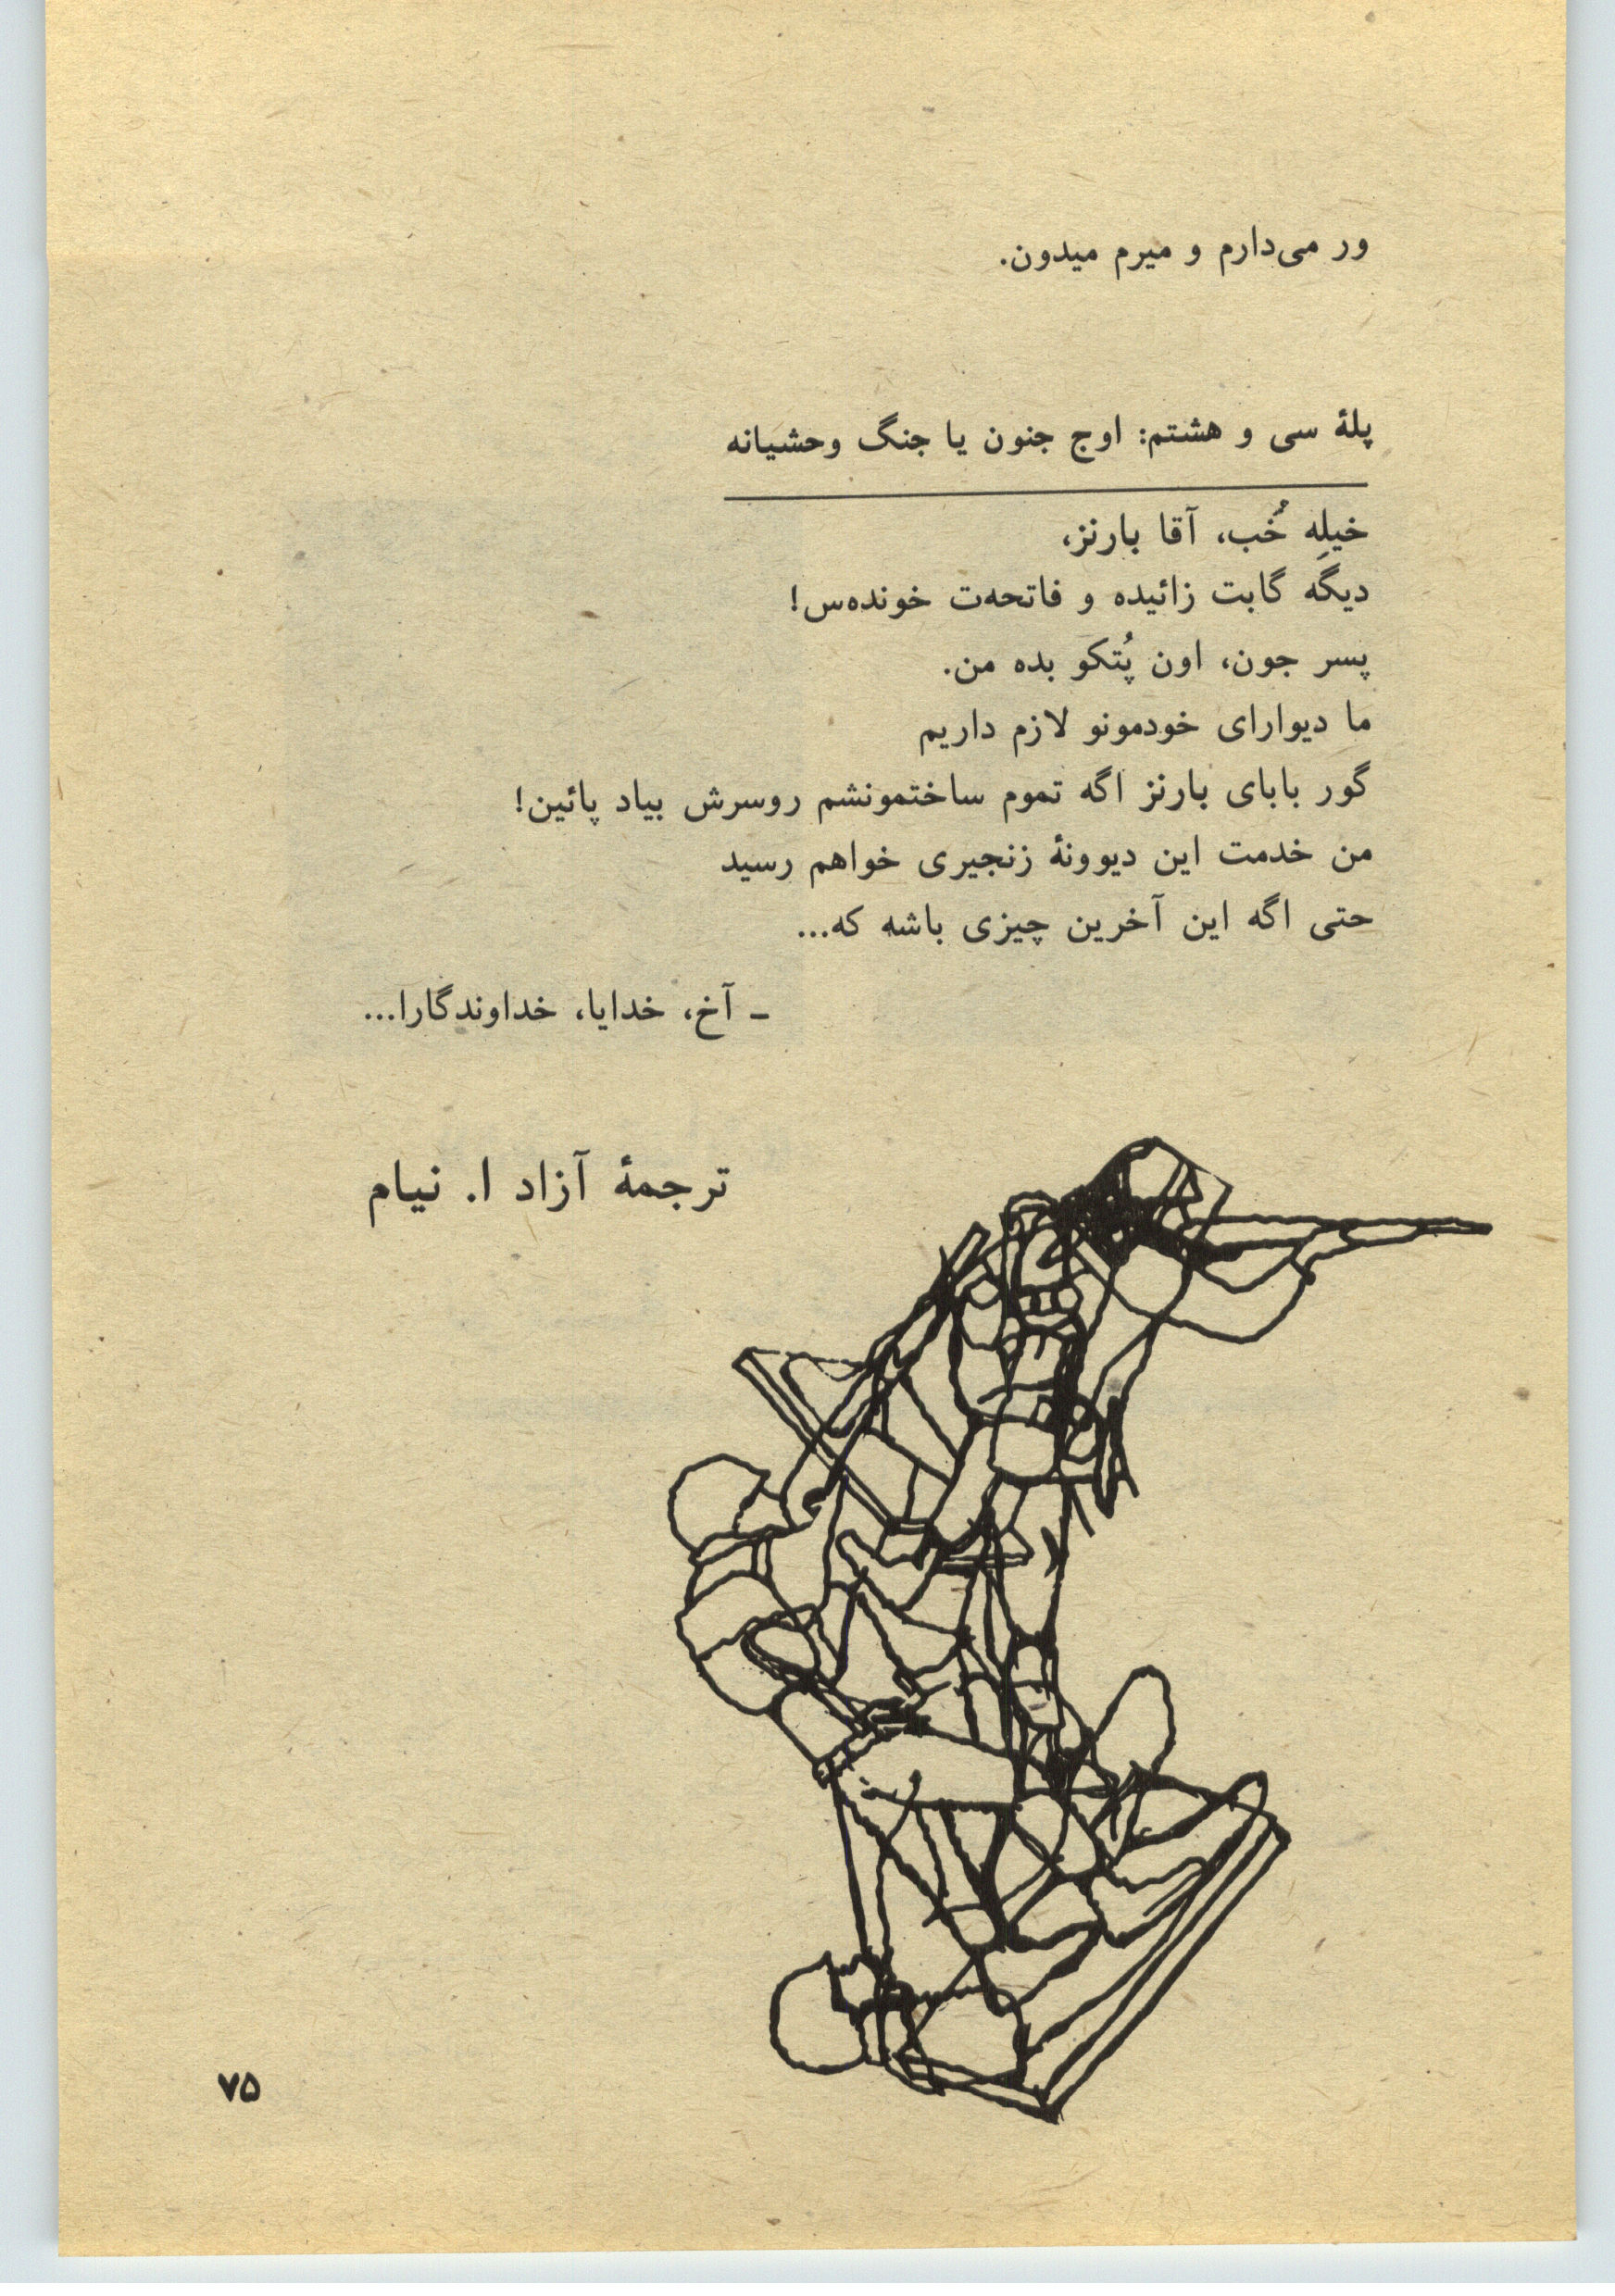 ور می‌دارم و میرم میدون.
پلهٔ سی و هشتم: اوج جنون یا جنگ وحشیانه
خیلِه خُب، آقا بارنز،
دیگَه گابت زائیده و فاتحه‌ت خونده‌س!
پسر جون، اون پُتکو بده من.
ما دیوارای خودمونو لازم داریم
گور بابای بارنز اگه تموم ساختمونشم روسرش بیاد پائین!
من خدمت این دیوونهٔ زنجیری خواهم رسید
حتی اگه این آخرین چیزی باشه که...
ـ آخ، خدایا، خداوندگارا...
ترجمهٔ آزاد ا. نیام
۷۵